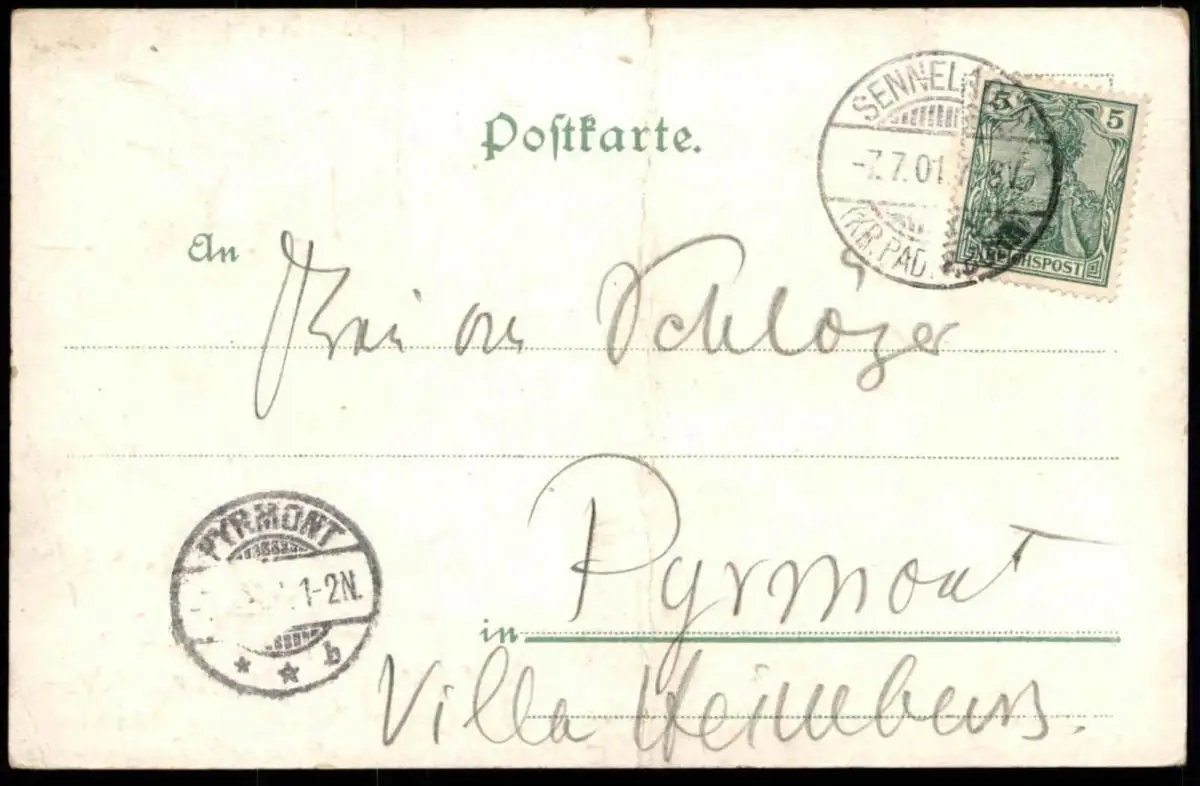 Postkarte.
SENNELAGER
5 5
-7.7.01. 8V.
(KR. PAD.
REICHSPOST
An
von Schlözer
PYRMONT
1-2N.
* * b
in Pyrmont
Villa